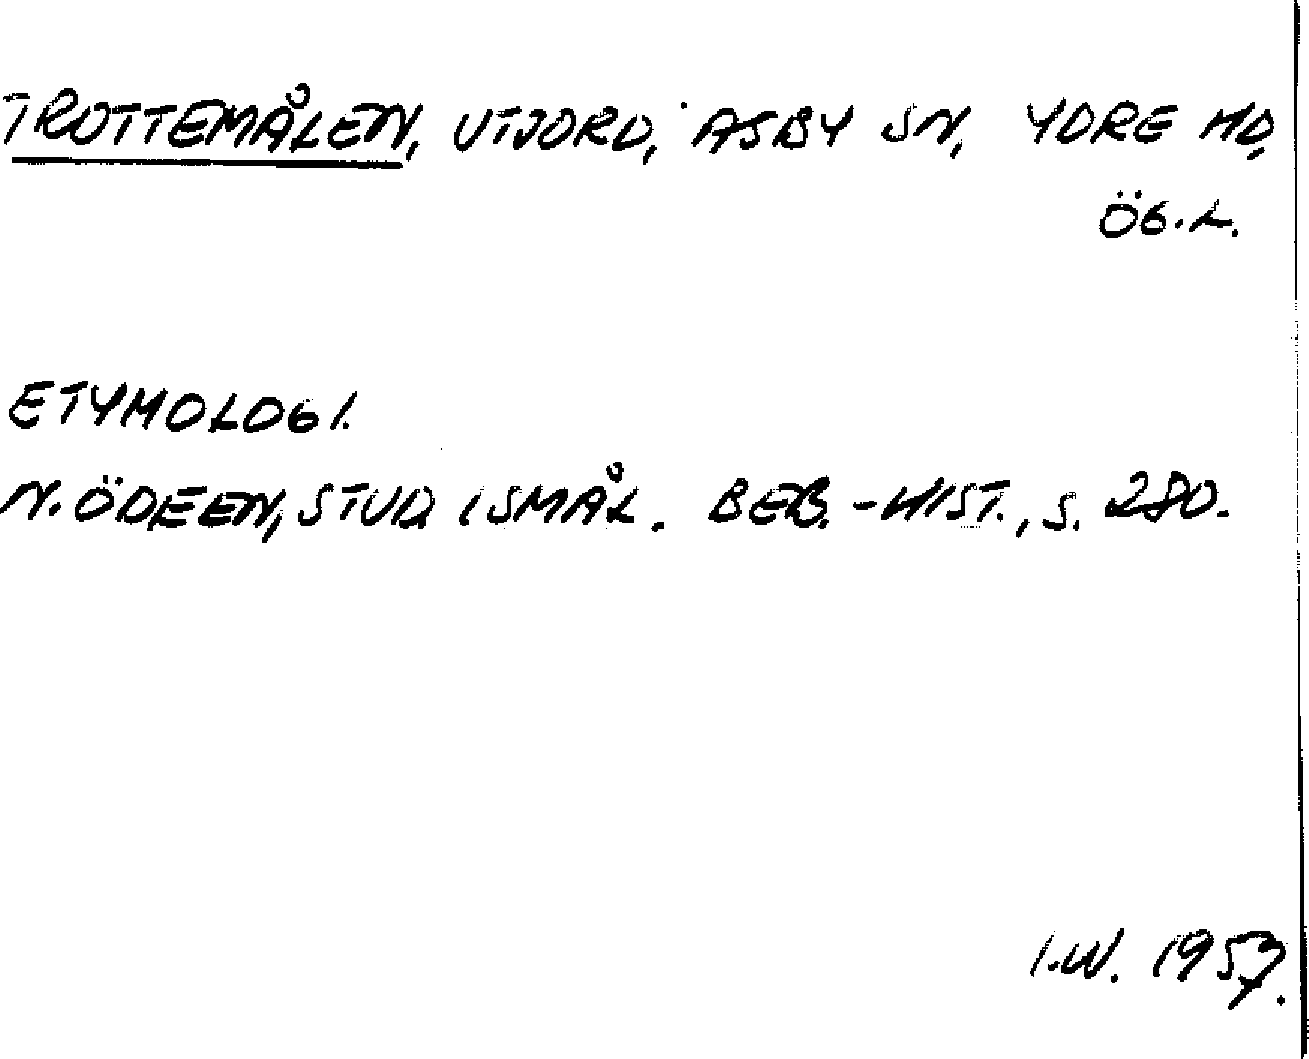 TROTTEMÅLEN, UTJORD, ASBY SN, YDRE HD,
ÖG.L.
ETYMOLOGI.
N. ÖDEEN, STUD. I SMÅL. BEB.-HIST., S. 280.
I.W. 1957.